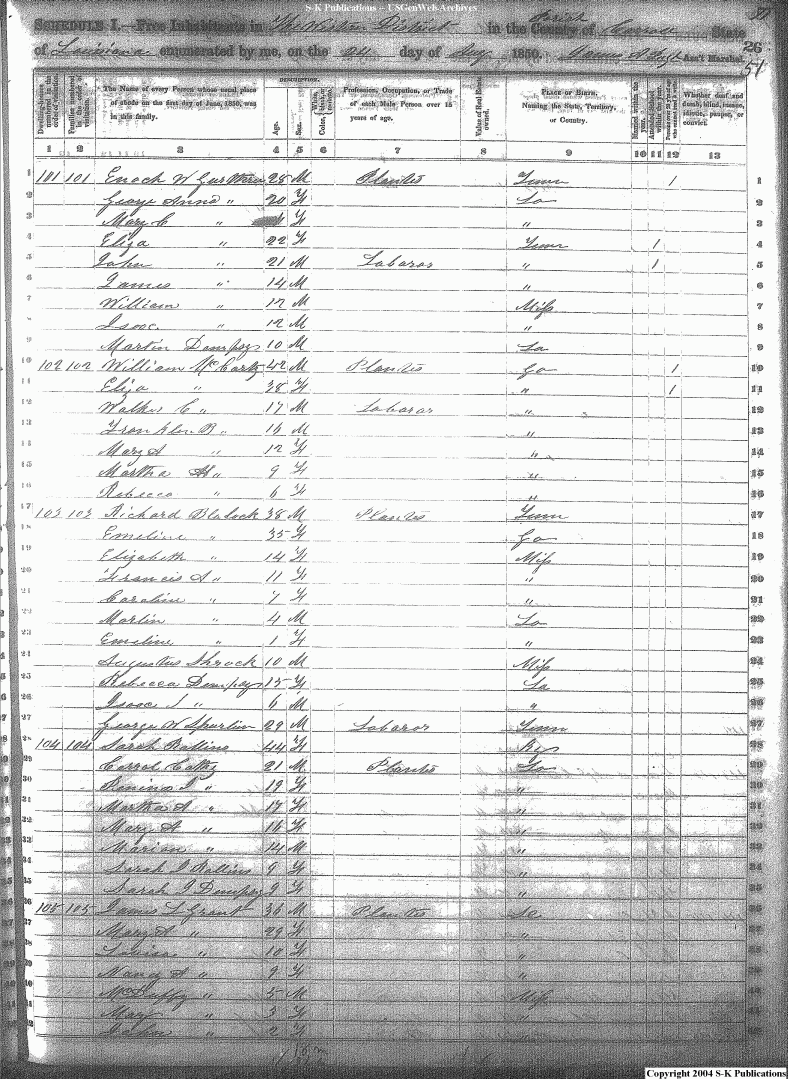 S-K Publications -- USGenWeb Archives
SCHEDULE I.—Free Inhabitants in The Western District in the County of Parish Carroll State
of Louisiana enumerated by me, on the day of Aug 1850. Ass't Marshal.
26
51
Dwelling-houses numbered in the order of visitation.
Families numbered in the order of visitation.
The Name of every Person whose usual place of abode on the first day of June, 1850, was in this family.
Description.
Age.
Sex.
White, black, or mulatto.
Color,
Profession, Occupation, or Trade of each Male Person over 15 years of age.
Value of Real Estate owned.
Place of Birth. Naming the State, Territory, or Country.
Married within the year.
Attended School within the year.
Persons over 20 y'rs of age who cannot read & write.
Whether deaf and dumb, blind, insane, idiotic, pauper, or convict.
1 2 3 4 5 6 7 8 9 10 11 12 13
1 101 101 Enoch W 28 M Planter Tenn / 1
2 George Anna " 20 F La 2
3 Mary C " F " 3
4 Eliza " 22 F Tenn / 4
5 John " 21 M Labaror " / 5
6 James " 14 M " 6
7 William " 12 M Miss 7
8 Isaac " 12 M " 8
9 Martin Dempsy 10 M La 9
10 102 102 William McCarty 42 M Planter Ga / 10
11 Eliza " 38 F " / 11
12 Walker C " 17 M Labaror " 12
13 Franklin B " 16 M " 13
14 Mary A " 12 F " 14
15 Martha " 9 F " 15
16 Rebecca " 6 F " 16
17 103 103 Richard Blalock 38 M Planter Tenn 17
18 Emeline " 35 F Ga 18
19 Elizabeth " 14 F Miss 19
20 Francis A " 11 F " 20
21 Caroline " 7 F " 21
22 Martin " 4 M La 22
23 Emeline " 1 F " 23
24 Augustus Shrock 10 M Miss 24
25 Rebecca Dempsy 15 F La 25
26 Isaac J " 6 M " 26
27 George W Spurlin 29 M Labaror Tenn 27
28 104 104 Sarah Rollins 44 F Ky 28
29 Carrol Cathy 21 M Planter La 29
30 J " 19 F " 30
31 Martha A " 17 F " 31
32 Mary A " 16 F " 32
33 Marion " 14 M " 33
34 Sarah J Rollins 9 F " 34
35 Sarah J Dempsy 9 F " 35
36 105 105 James L Grant 36 M Planter 36
37 Mary A " 29 F " 37
38 Louisa " 10 F " 38
39 Nancy A " 9 F " 39
40 McDuffy " 5 M Miss 40
41 Mary " 3 F " 41
42 " 2 F " 42
Copyright 2004 S-K Publications